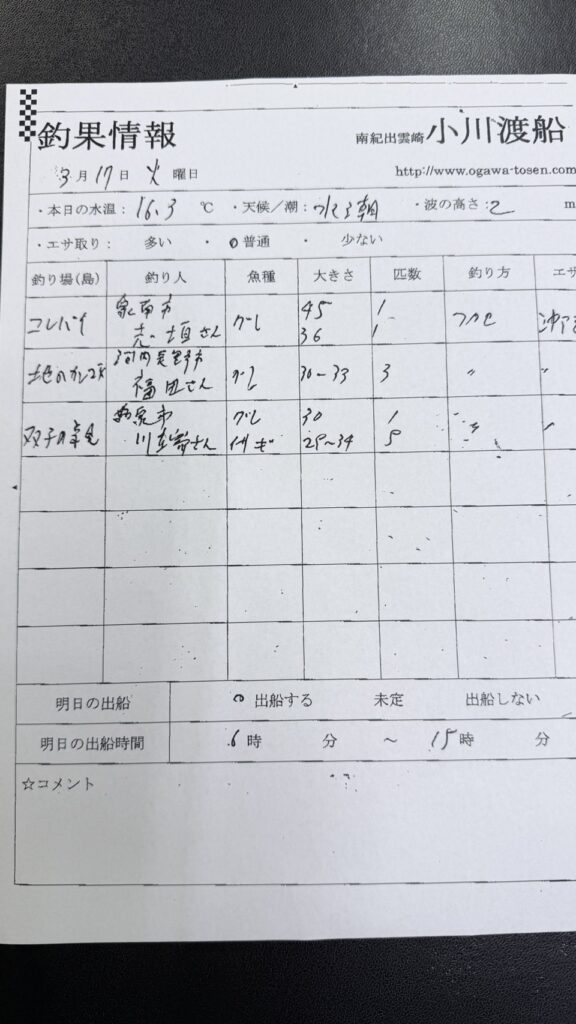 釣果情報
南紀出雲崎 小川渡船
3月17日 火曜日
http://www.ogawa-tosen.com
・本日の水温：16.3 ℃ ・天候/潮： ・波の高さ：2 m
・エサ取り： 多い ・ 普通 ・ 少ない
釣り場(島) 釣り人 魚種 大きさ 匹数 釣り方 エサ
泉南市
コレバイ 垣さん グレ 45 1 フカセ
36 1
河内長野市
地の 福田さん グレ 30-33 3 〃 〃
双子の 市 グレ 30 1
川 さん イサギ 25~34 5
明日の出船 出船する 未定 出船しない
明日の出船時間 6時 分 ～ 15時 分
☆コメント